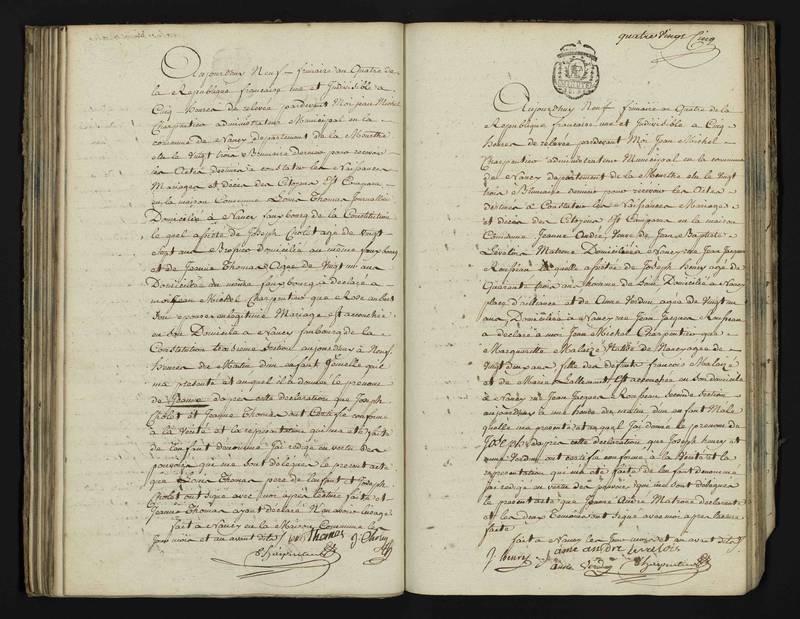 Aujourdhuy Neuf frimaire an Quatre de
la Republique française une et Indivisible a
Cinq heures de relevée pardevant Moi jean Michel
Charpentier administrateur Municipal en la
commune de Nancy departement de la Meurthe
elu le Vingt trois Brumaire dernier pour recevoir
les Actes destinés a constater les Naissances
Mariages et décès des Citoyens Est Comparu
en la maison Commune Louis Thomas
Domicilié a Nancy fauxbourg de la Constitution
le quel assisté de Joseph Cholot agé de vingt
Sept ans domicilié au même fauxbourg
et de Jeanne Thomas Agée de Vingt un ans
Domiciliée au même fauxbourg à déclaré a
moi jean Michel Charpentier que Rose
Son Epouse en légitime Mariage Est accouchée
en son Domicile a Nancy fauxbourg de la
Constitution troisieme Section aujourdhuy à Neuf
heures du Matin d'un enfant femelle qu'il
ma presenté et auquel il à donné le prenom
de Jeanne daprès cette déclaration que Joseph
Cholot et Jeanne Thomas ont Certifié conforme
à la Verité et la representation qui m'a eté faite
de l'enfant denommé jai redigé en vertu des
pouvoirs qui me sont délégués le present acte
que Louis Thomas pere de l'enfant et Joseph
Cholot ont Signé avec moi après lecture faite et
Jeanne Thomas ayant declaré N'en avoir l'usage
fait à Nancy en la Maison Commune les
Jour mois et an avant dits
Thomas J. Cholot
Charpentier
quatre Vingt Cinq
Aujourdhuy Neuf frimaire an Quatre de la
Republique française une et Indivisible a Cinq
heures de relevée pardevant Moi Jean Michel
Charpentier administrateur Municipal en la commune
de Nancy departement de la Meurthe elu le Vingt
trois Brumaire dernier pour recevoir les Actes
destinés a Constater les Naissances Mariages
et décès des Citoyens Est Comparue en la maison
Commune Jeanne André Veuve de Jean Baptiste
Matrone Domiciliée à Nancy rue Jean Jacques
Rousseau laquelle assistée de Joseph henry agé de
Quarante trois ans Domicilié a Nancy
place d'alliance et de Anne Verdun agée de Vingt un
ans Domiciliée à Nancy rue Jean Jacques Rousseau
a déclaré à moi Jean Michel Charpentier que
Marguerite Malaizé Native de agée de
Vingt deux ans fille des défunts francois Malaizé
et de Marie Lallemant Est accouchée en Son domicile
a Nancy rue Jean Jacques Rousseau Seconde Section
aujourdhuy à une heure du matin d'un enfant Male
quelle ma presenté et auquel Jai donné le prenom de
Joseph daprès cette déclaration que Joseph henry et
anne Verdun ont certifié conforme à la Verité et la
representation qui m'a eté faite de l'enfant denommé
jai redigé en vertu des pouvoirs qui me sont délégués
le present acte que Jeanne André Matrone declarante
et les deux temoins ont Signé avec moi après lecture
faite
fait a Nancy les Jour mois et an avant dits
J. henry jane andré
anne Verdun Charpentier